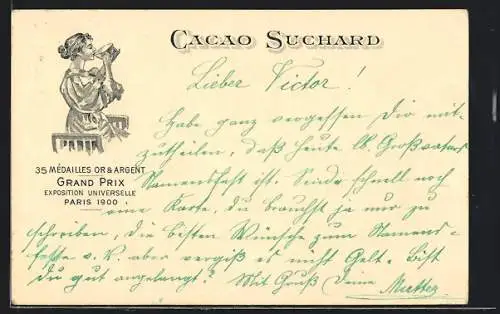 CACAO SUCHARD
Lieber Victor!
Habe ganz vergessen Dir mit-
zutheilen, daß heute lb. Großvaters
Namensfest ist. Sende schnell noch
eine Karte, du brauchst ja nur zu
schreiben, die besten Wünsche zum Namens-
feste v. V. aber vergiß es nicht Gelt. Bist
du gut angelangt? Mit Gruß Deine Mutter
35 MÉDAILLES OR & ARGENT
GRAND PRIX
EXPOSITION UNIVERSELLE
PARIS 1900